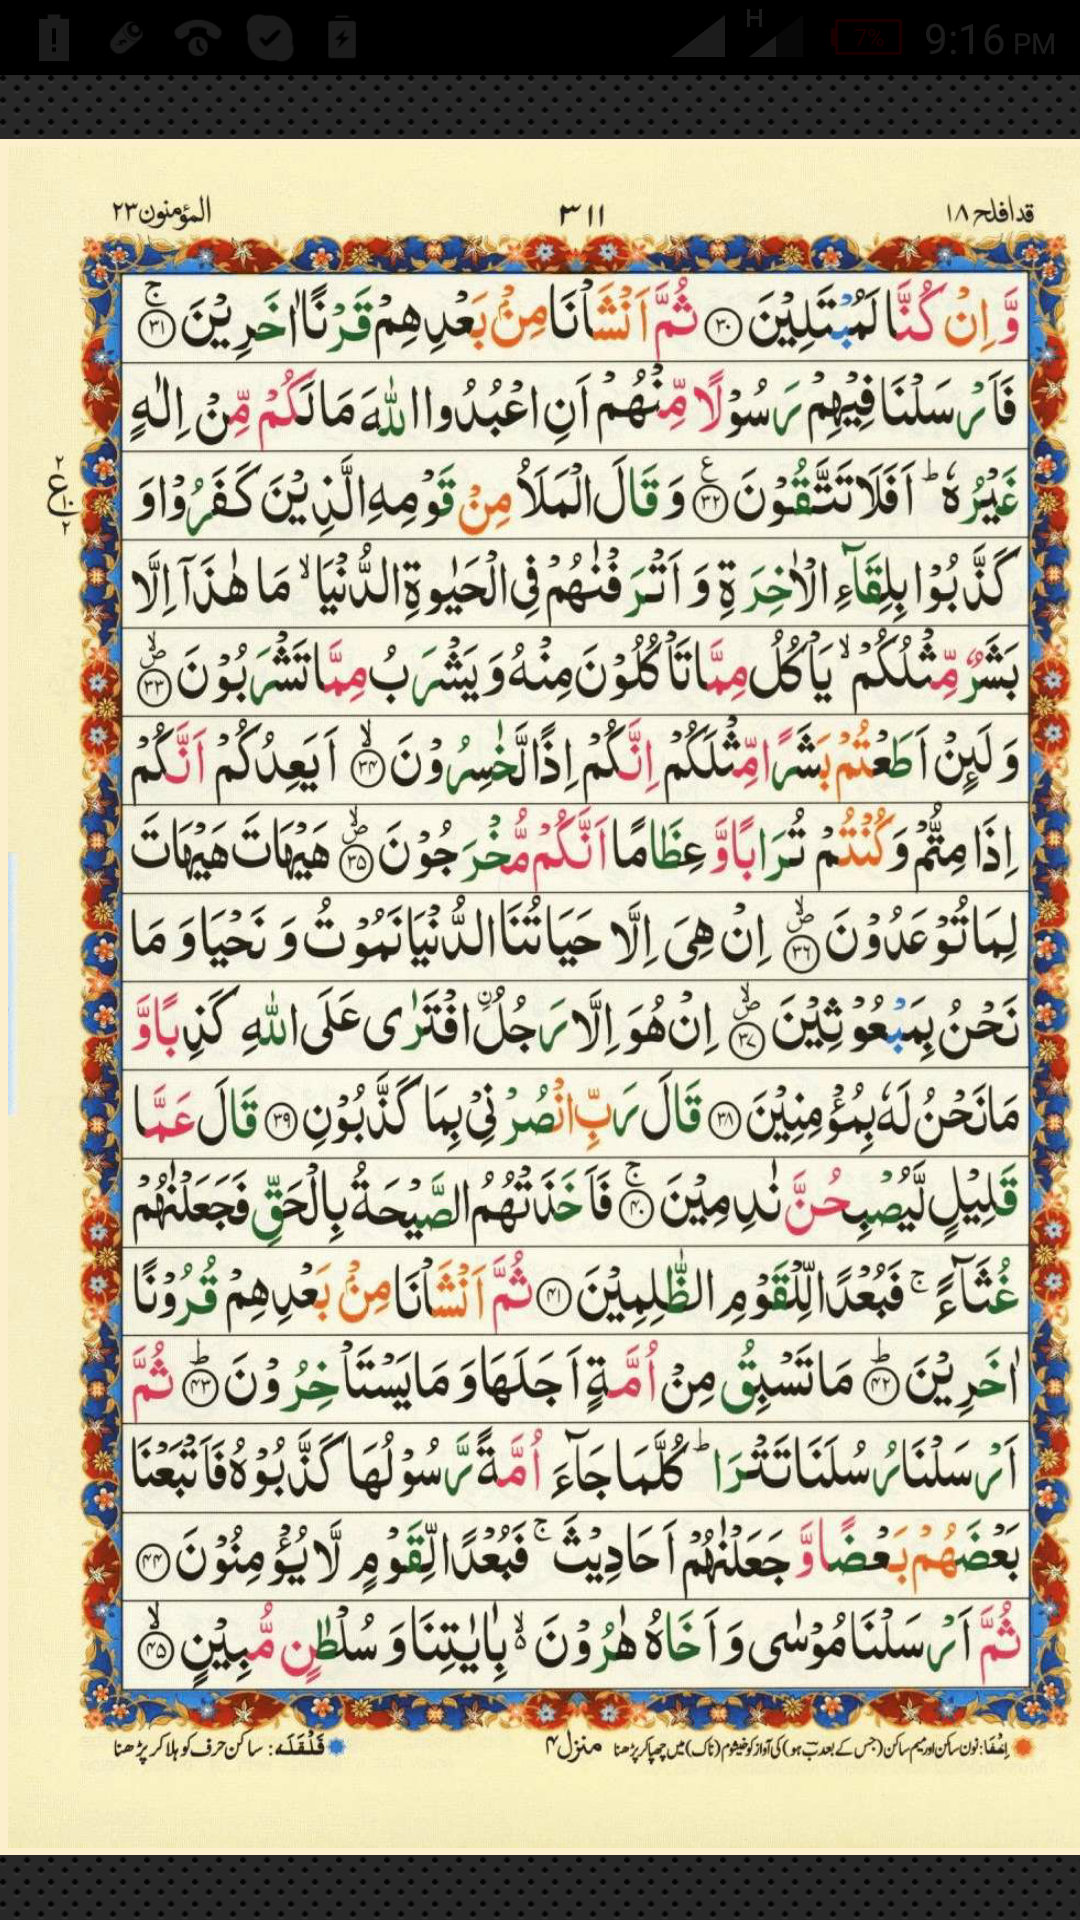 H 7% 9:16 PM
قد افلح ١٨ ٣١١ المؤمنون ٢٣
وَّ اِنْ كُنَّا لَمُبْتَلِيْنَ ﴿۳۰﴾ ثُمَّ اَنْشَاْنَا مِنْۢ بَعْدِهِمْ قَرْنًا اٰخَرِيْنَ ۚ﴿۳۱﴾
فَاَرْسَلْنَا فِيْهِمْ رَسُوْلًا مِّنْهُمْ اَنِ اعْبُدُوا اللّٰهَ مَا لَكُمْ مِّنْ اِلٰهٍ
غَيْرُهٗ ؕ اَفَلَا تَتَّقُوْنَ ﴿۳۲﴾ ع وَ قَالَ الْمَلَاُ مِنْ قَوْمِهِ الَّذِيْنَ كَفَرُوْا وَ
ع ٢ ١٠ ٢
كَذَّبُوْا بِلِقَآءِ الْاٰخِرَةِ وَ اَتْرَفْنٰهُمْ فِي الْحَيٰوةِ الدُّنْيَا ۙ مَا هٰذَاۤ اِلَّا
بَشَرٌ مِّثْلُكُمْ ۙ يَاْكُلُ مِمَّا تَاْكُلُوْنَ مِنْهُ وَ يَشْرَبُ مِمَّا تَشْرَبُوْنَ ۪ۙ﴿۳۳﴾
وَ لَئِنْ اَطَعْتُمْ بَشَرًا مِّثْلَكُمْ اِنَّكُمْ اِذًا لَّخٰسِرُوْنَ ۙ﴿۳۴﴾ اَيَعِدُكُمْ اَنَّكُمْ
اِذَا مِتُّمْ وَ كُنْتُمْ تُرَابًا وَّ عِظَامًا اَنَّكُمْ مُّخْرَجُوْنَ ۪ۙ﴿۳۵﴾ هَيْهَاتَ هَيْهَاتَ
لِمَا تُوْعَدُوْنَ ۪ۙ﴿۳۶﴾ اِنْ هِيَ اِلَّا حَيَاتُنَا الدُّنْيَا نَمُوْتُ وَ نَحْيَا وَ مَا
نَحْنُ بِمَبْعُوْثِيْنَ ۪ۙ﴿۳۷﴾ اِنْ هُوَ اِلَّا رَجُلُ ۨ افْتَرٰى عَلَى اللّٰهِ كَذِبًا وَّ
مَا نَحْنُ لَهٗ بِمُؤْمِنِيْنَ ﴿۳۸﴾ قَالَ رَبِّ انْصُرْنِيْ بِمَا كَذَّبُوْنِ ﴿۳۹﴾ قَالَ عَمَّا
قَلِيْلٍ لَّيُصْبِحُنَّ نٰدِمِيْنَ ۚ﴿۴۰﴾ فَاَخَذَتْهُمُ الصَّيْحَةُ بِالْحَقِّ فَجَعَلْنٰهُمْ
غُثَآءً ۚ فَبُعْدًا لِّلْقَوْمِ الظّٰلِمِيْنَ ﴿۴۱﴾ ثُمَّ اَنْشَاْنَا مِنْۢ بَعْدِهِمْ قُرُوْنًا
اٰخَرِيْنَ ؕ﴿۴۲﴾ مَا تَسْبِقُ مِنْ اُمَّةٍ اَجَلَهَا وَ مَا يَسْتَاْخِرُوْنَ ؕ﴿۴۳﴾ ثُمَّ
اَرْسَلْنَا رُسُلَنَا تَتْرَا ؕ كُلَّمَا جَآءَ اُمَّةً رَّسُوْلُهَا كَذَّبُوْهُ فَاَتْبَعْنَا
بَعْضَهُمْ بَعْضًا وَّ جَعَلْنٰهُمْ اَحَادِيْثَ ۚ فَبُعْدًا لِّقَوْمٍ لَّا يُؤْمِنُوْنَ ﴿۴۴﴾
ثُمَّ اَرْسَلْنَا مُوْسٰى وَ اَخَاهُ هٰرُوْنَ ۬ۙ بِاٰيٰتِنَا وَ سُلْطٰنٍ مُّبِيْنٍ ۙ﴿۴۵﴾
اِخْفَا: نون ساکن اور میم ساکن (جس کے بعد ب ہو) کی آواز کو خیشوم (ناک) میں چھپا کر پڑھنا منزل ٤ قَلْقَلَه: ساکن حرف کو ہلا کر پڑھنا